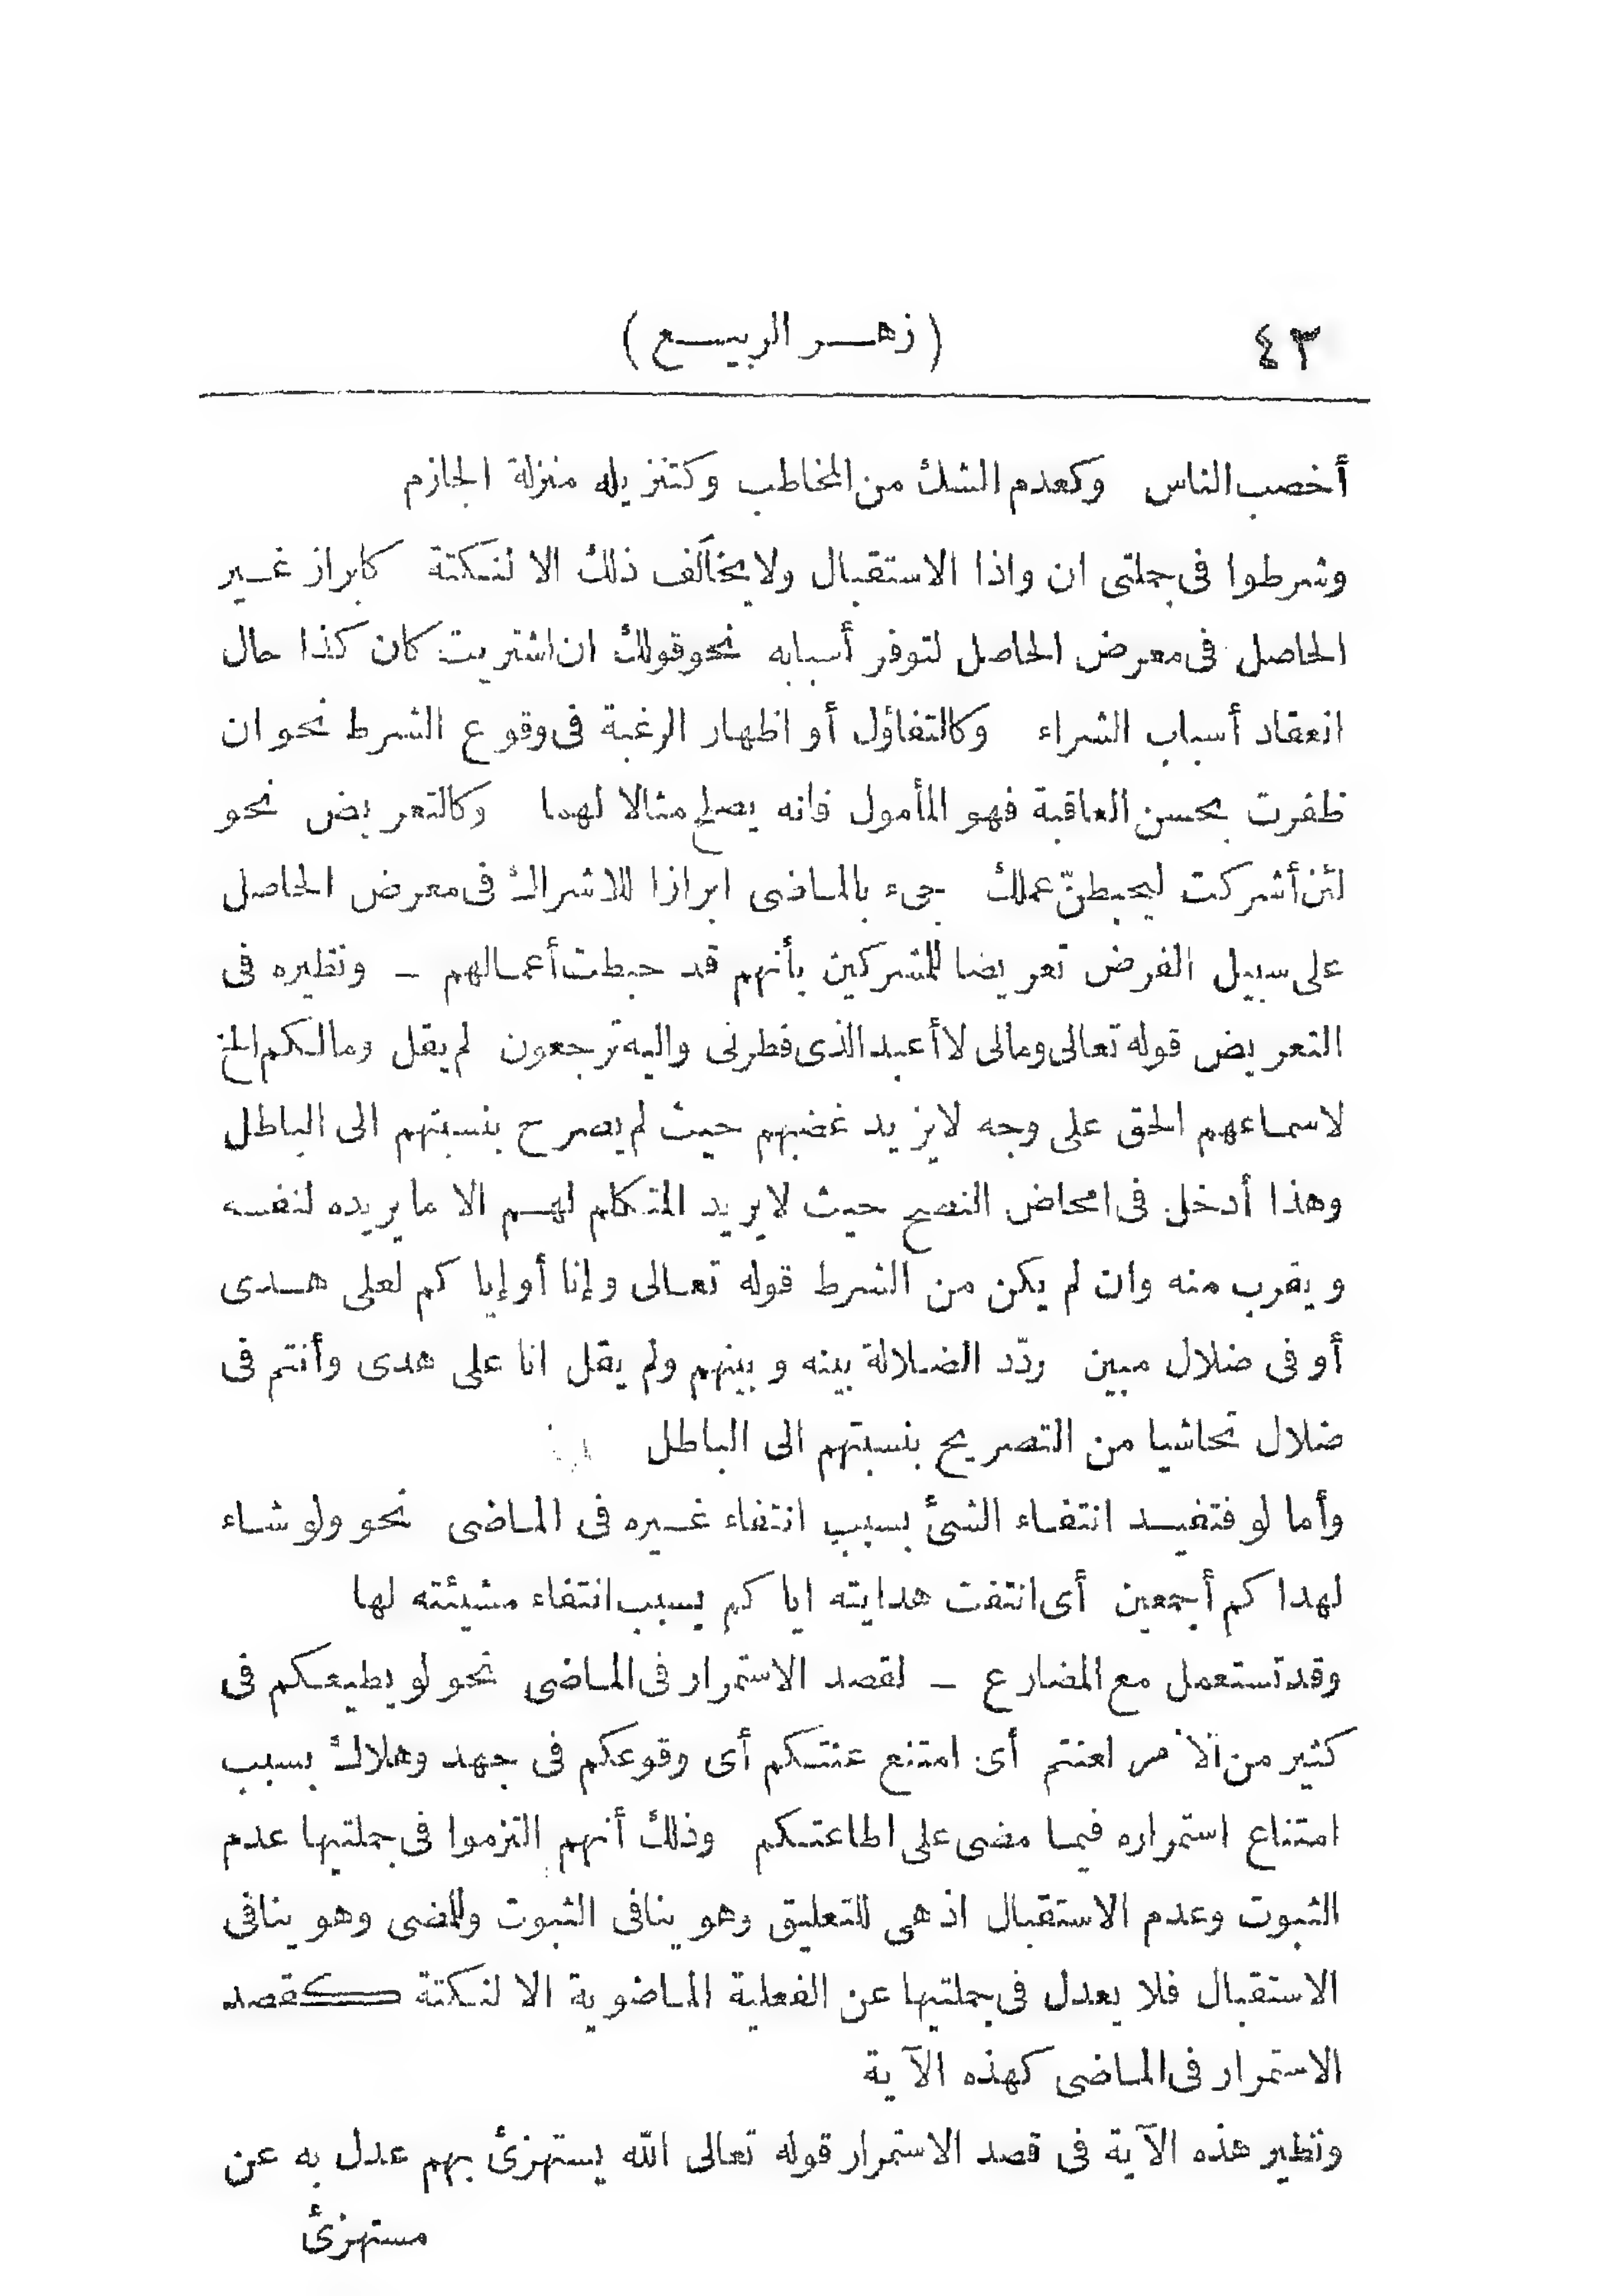 ٤٣ (زهر الربيع)
أخصب الناس وكعدم الشك من المخاطب وكتنزيله منزلة الجازم
وشرطوا فى جملتى ان واذا الاستقبال ولا يخالف ذلك الا لنكتة كابراز غير
الحاصل فى معرض الحاصل لتوفر أسبابه نحو قولك ان اشتريت كان كذا حال
انعقاد أسباب الشراء وكالتفاؤل أو اظهار الرغبة فى وقوع الشرط نحو ان
ظفرت بحسن العاقبة فهو المأمول فانه يصلح مثالا لهما وكالتعريض نحو
لئن أشركت ليحبطنّ عملك جىء بالماضى ابرازا للاشراك فى معرض الحاصل
على سبيل الفرض تعريضا للمشركين بأنهم قد حبطت أعمالهم - ونظيره فى
التعريض قوله تعالى ومالى لا أعبد الذى فطرنى واليه ترجعون لم يقل ومالكم الخ
لاسماعهم الحق على وجه لا يزيد غضبهم حيث لم يصرح بنسبتهم الى الباطل
وهذا أدخل فى امحاض النصح حيث لا يريد المتكلم لهم الا ما يريده لنفسه
ويقرب منه وان لم يكن من الشرط قوله تعالى وإنا أو إياكم لعلى هدى
أو فى ضلال مبين ردّد الضلالة بينه وبينهم ولم يقل انا على هدى وأنتم فى
ضلال تحاشيا من التصريح بنسبتهم الى الباطل
وأما لو فتفيد انتفاء الشئ بسبب انتفاء غيره فى الماضى نحو ولو شاء
لهداكم أجمعين أى انتفت هدايته اياكم بسبب انتفاء مشيئته لها
وقد تستعمل مع المضارع - لقصد الاستمرار فى الماضى نحو لو يطيعكم فى
كثير من الأمر لعنتم أى امتنع عنتكم أى وقوعكم فى جهد وهلاك بسبب
امتناع استمراره فيما مضى على اطاعتكم وذلك أنهم التزموا فى جملتيها عدم
الثبوت وعدم الاستقبال اذ هى للتعليق وهو ينافى الثبوت وللمضى وهو ينافى
الاستقبال فلا يعدل فى جملتيها عن الفعلية الماضوية الا لنكتة كقصد
الاستمرار فى الماضى كهذه الآية
ونظير هذه الآية فى قصد الاستمرار قوله تعالى الله يستهزئ بهم عدل به عن
مستهزئ